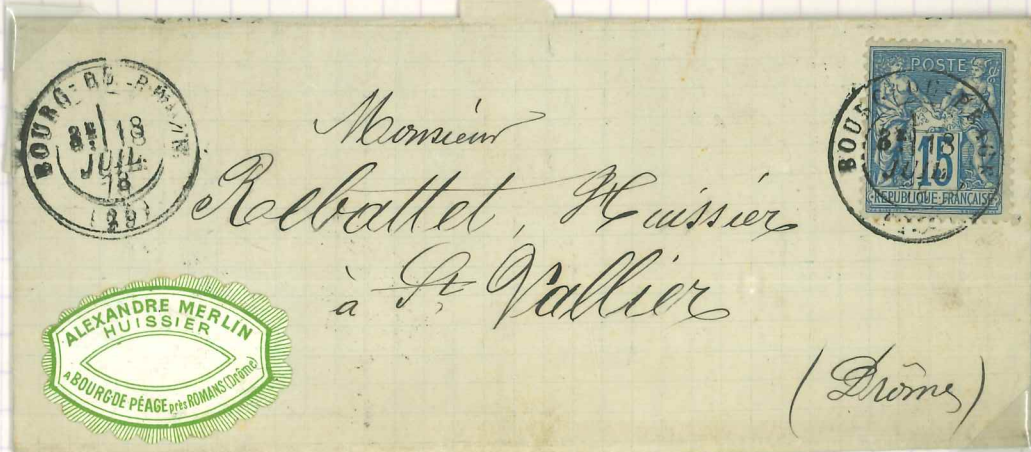 BOURG-DE-PEAGE
8E 18
JUIL
78
(29)
POSTE
15
REPUBLIQUE FRANÇAISE
BOURG-DE-PEAGE
8E 18
JUIL
Monsieur
Rebattet, Huissier
à St Vallier
(Drôme)
ALEXANDRE MERLIN
HUISSIER
A BOURG DE PÉAGE près ROMANS (Drôme)